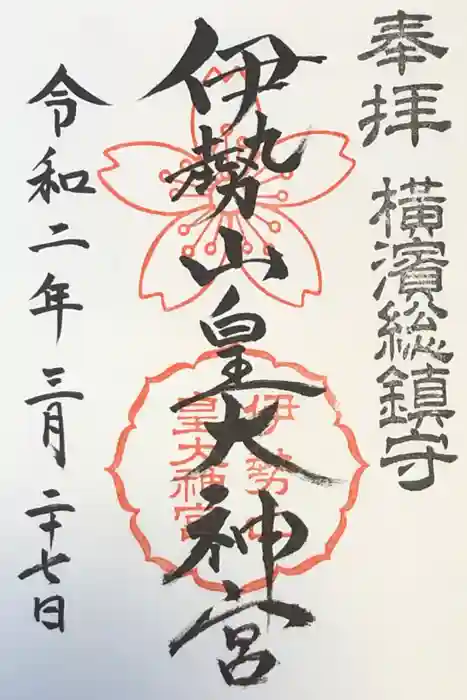 奉拝 横濱総鎮守
伊勢山皇大神宮
伊勢山
皇大神宮
令和二年三月二十七日